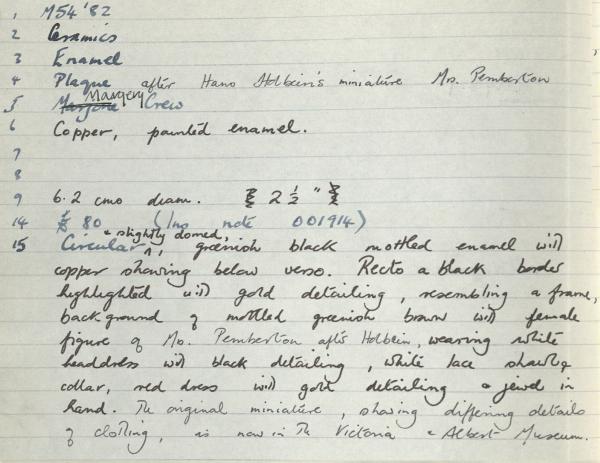 1 M54 '82
2 Ceramics
3 Enamel
4 Plaque after Hans Holbein's miniature Mrs. Pemberton
5 Marjorie Margery Crew
6 Copper, painted enamel.
7
8
9 6.2 cms diam. 2 1/2"
14 £ 80 (Inv note 001914)
15 Circular & slightly domed, greenish black mottled enamel with
copper showing below verso. Recto a black border
highlighted with gold detailing, resembling a frame,
background of mottled greenish brown with female
figure of Mrs. Pemberton after Holbein, wearing white
headdress with black detailing, white lace shawl &
collar, red dress with gold detailing & jewel in
hand. The original miniature, showing differing details
of clothing, is now in The Victoria & Albert Museum.